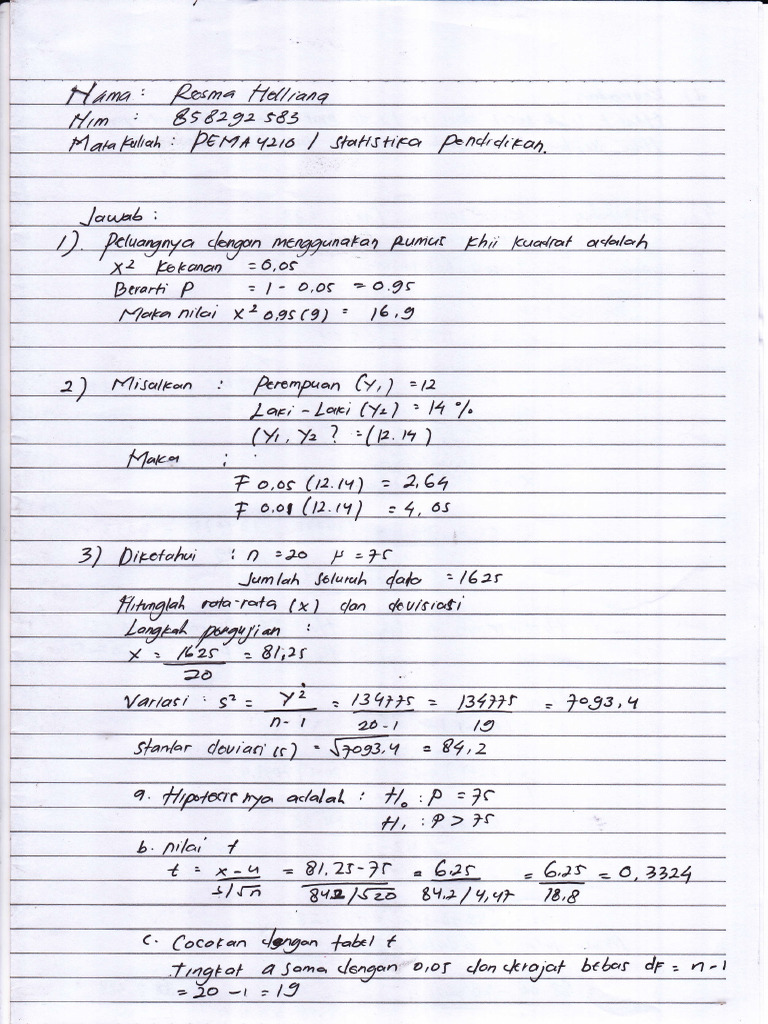 Nama : Resma Helliana
Nim : 858292583
Matakuliah : PEMA4210 / Statistika pendidikan.
Jawab :
1). Peluangnya dengan menggunakan Rumus Khii kuadrat adalah
x² Kekanan = 0,05
Berarti P = 1 - 0,05 = 0.95
Maka nilai x² 0,95 (9) = 16,9
2) Misalkan : Perempuan (Y₁) = 12
Laki - Laki (Y₂) = 14 %
(Y₁, Y₂ ? = (12.14)
Maka :
F 0,05 (12.14) = 2,64
F 0,01 (12.14) = 4,05
3) Diketahui : n = 20 μ = 75
Jumlah seluruh data = 1625
Hitunglah rata-rata (x) dan devisiasi
Langkah pengujian :
x = 1625/20 = 81,25
Variasi : s² = Y²/n-1 = 134775/20-1 = 134775/19 = 7093,4
Stantar deviasi (s) = √7093,4 = 84,2
a. Hipotesisnya adalah : H₀ : P = 75
H₁ : P > 75
b. nilai t
t = x-4/s/√n = 81,25-75/84,2/√20 = 6,25/84,2/4,47 = 6,25/18,8 = 0,3324
c. Cocokan dengan tabel t
Tingkat a sama dengan 0,05 dan derajat bebas dF = n-1
= 20 - 1 = 19